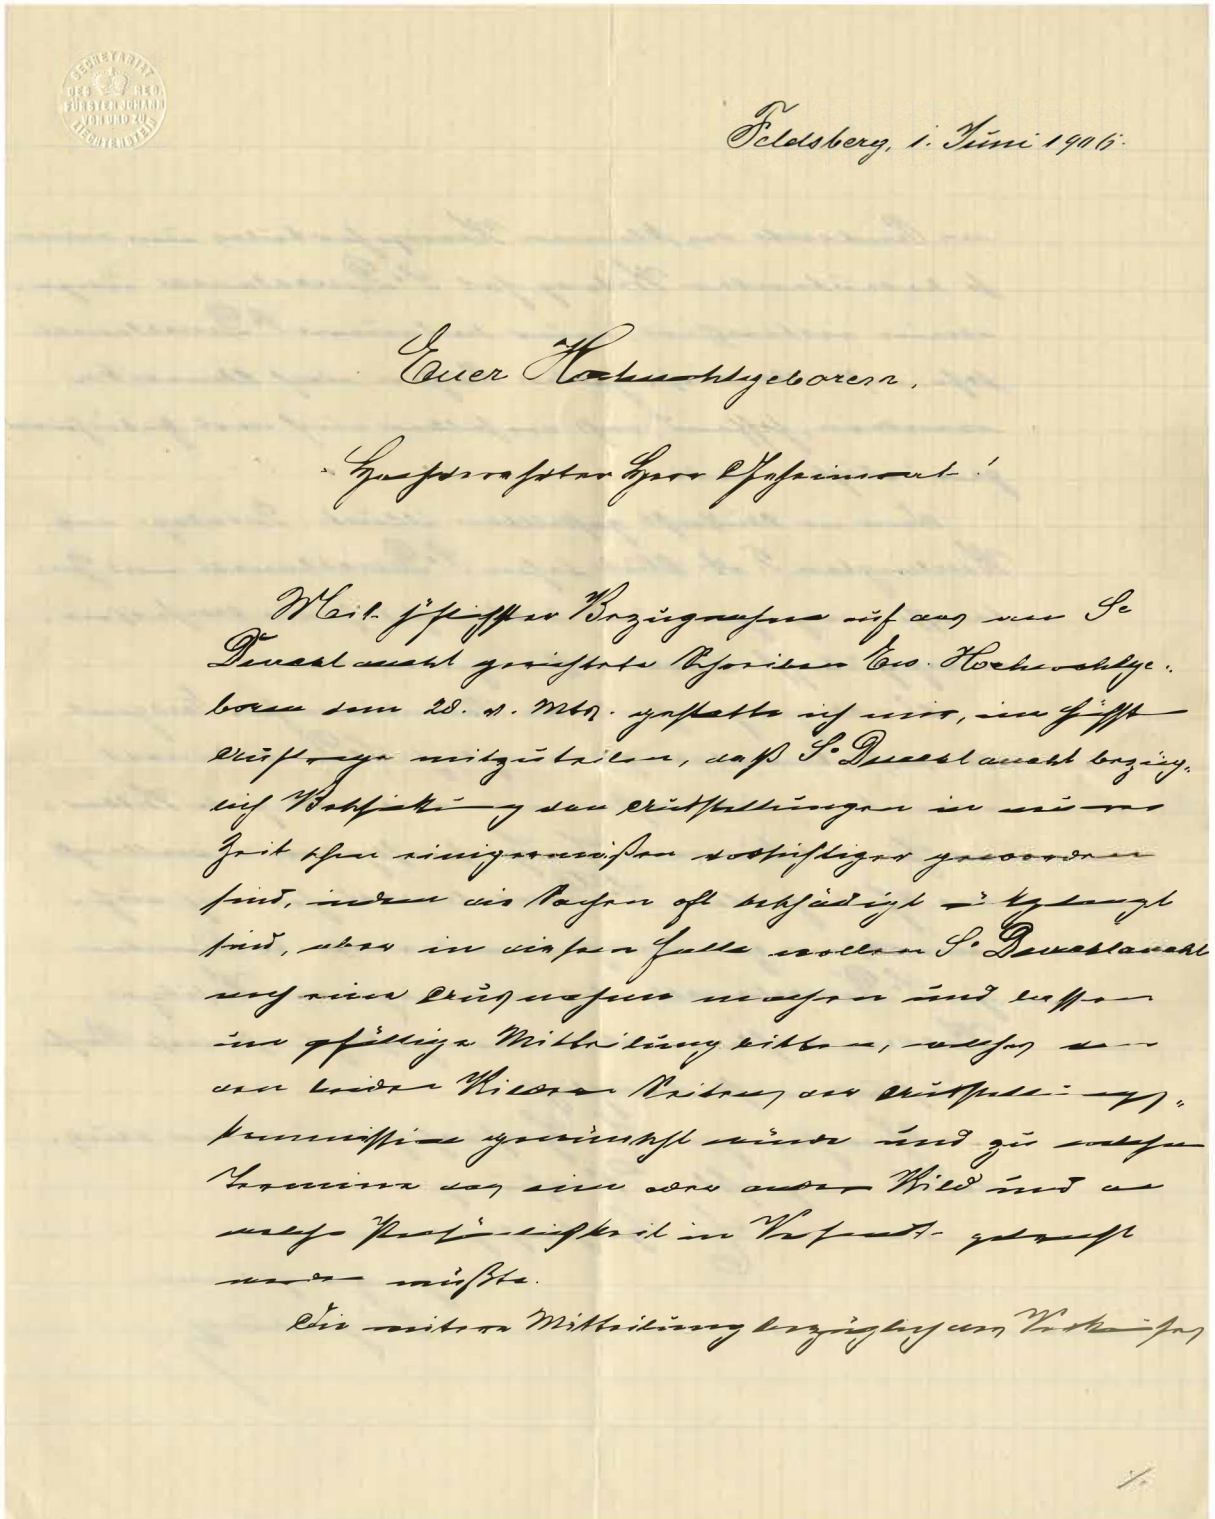 SECRETARIAT
DES REG.
FÜRSTEN JOHANN
VON UND ZU
LIECHTENSTEIN
Feldsberg, 1. Juni 1906.
Euer Hochwohlgeboren,
Hochverehrter Herr Geheimrat!
Mit höflichster Bezugnahme auf das an Se
Durchlaucht gerichtete Schreiben Ew. Hochwohlge-
boren vom 28. v. Mts. gestatte ich mir, im höchst
Auftrage mitzuteilen, daß Se Durchlaucht bezüg-
lich Beschickung von Ausstellungen in neuerer
Zeit schon einigermaßen vorsichtiger geworden
sind, indem die Sachen oft beschädigt zurückgelangt
sind, aber in diesem Falle wollen Se Durchlaucht
noch eine Ausnahme machen und lassen
um gefällige Mitteilung bitten, welches von
den beiden Bildern Seitens der Ausstellungs-
kommission gewünscht würde und zu welchem
Termine das eine oder andere Bild und an
welche Persönlichkeit in Versandt gebracht
werden müßte.
Die weitere Mitteilung bezüglich des Verkaufes
./.